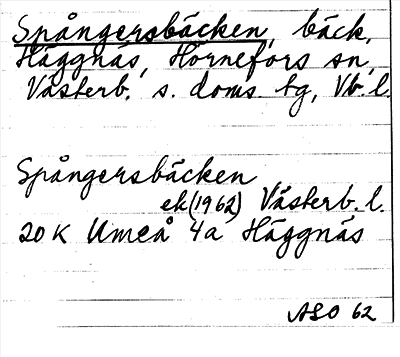 Spångersbäcken, bäck,
Häggnäs, Hörnefors sn,
Västerb. s. doms. tg, Vb. l.
Spångersbäcken
ek (1962) Västerb. l.
20K Umeå 4a Häggnäs
ASO 62